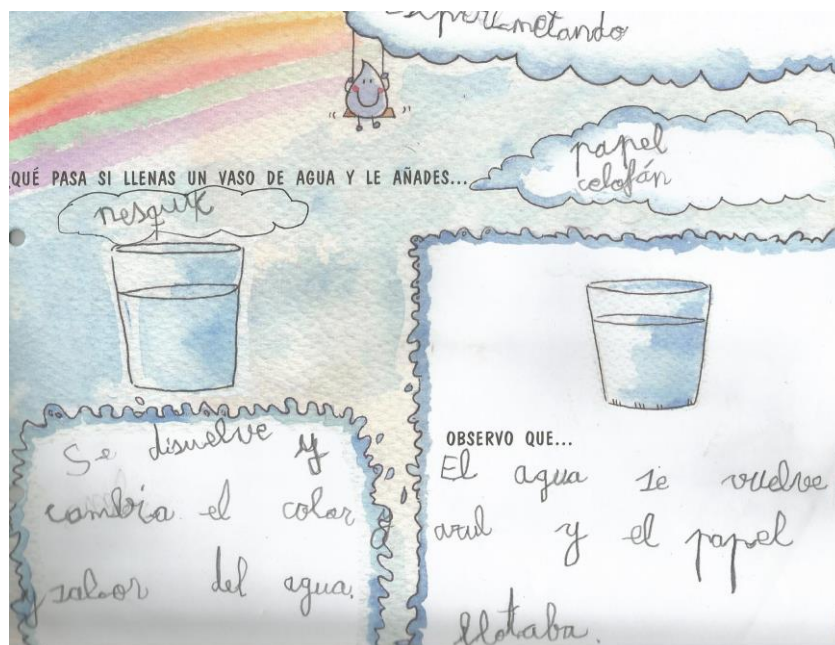 Experimetando
papel
celofán
QUÉ PASA SI LLENAS UN VASO DE AGUA Y LE AÑADES...
nesquik
Se disuelve y
cambia el color
y sabor del agua.
OBSERVO QUE...
El agua se vuelve
azul y el papel
flotaba.